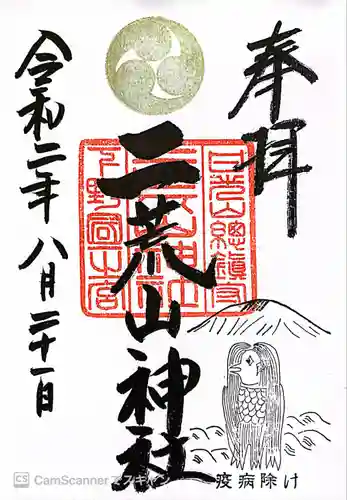 奉拝
二荒山神社
日光山總鎮守
下野國一之宮
二荒山神社
令和二年八月二十一日
疫病除け
CS CamScanner でスキャン